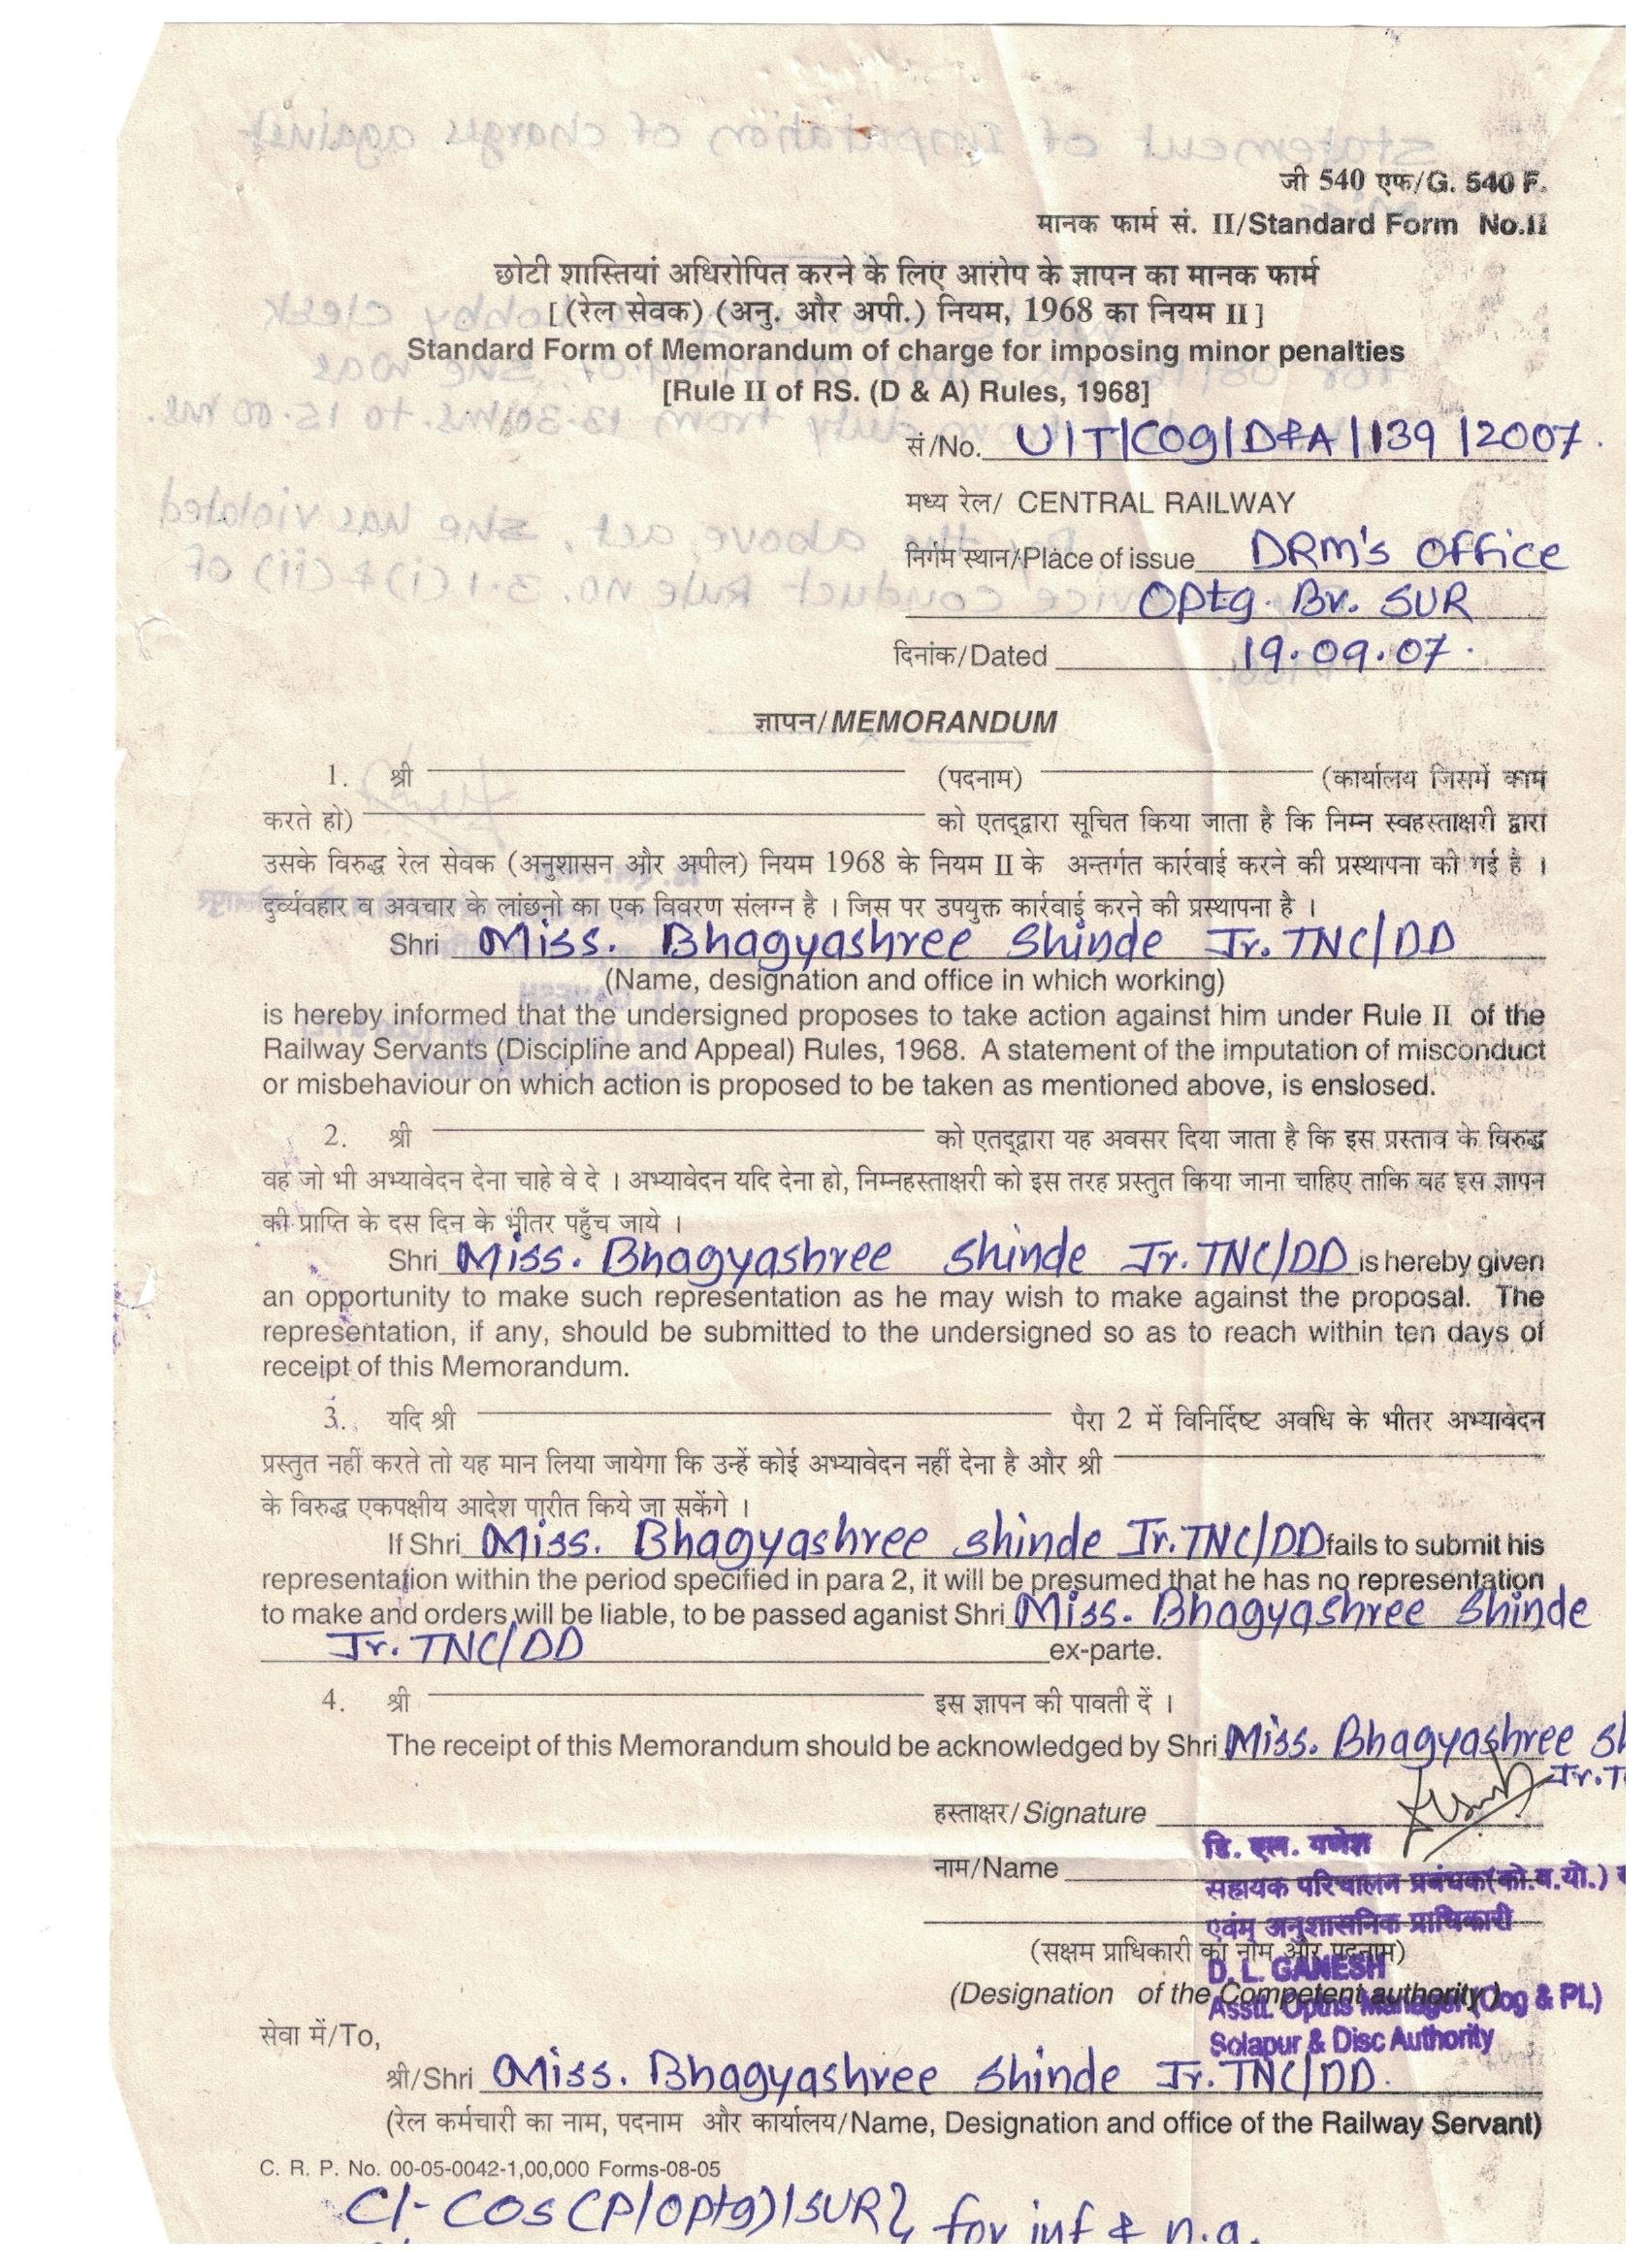 statement of Imputation of charges against
जी 540 एफ/G. 540 F.
मानक फार्म सं. II/Standard Form No.II
छोटी शास्तियां अधिरोपित करने के लिए आरोप के ज्ञापन का मानक फार्म
[(रेल सेवक) (अनु. और अपी.) नियम, 1968 का नियम II]
Standard Form of Memorandum of charge for imposing minor penalties
[Rule II of RS. (D & A) Rules, 1968]
सं/No. U/T/Cog/D&A/139/2007.
मध्य रेल/ CENTRAL RAILWAY
निर्गम स्थान/Place of issue DRM's Office
Optg. Br. SUR
दिनांक/Dated 19.09.07.
ज्ञापन/MEMORANDUM
1. श्री (पदनाम) (कार्यालय जिसमें काम
करते हो) को एतद्द्वारा सूचित किया जाता है कि निम्न स्वहस्ताक्षरी द्वारा
उसके विरुद्ध रेल सेवक (अनुशासन और अपील) नियम 1968 के नियम II के अन्तर्गत कार्रवाई करने की प्रस्थापना की गई है ।
दुर्व्यवहार व अवचार के लांछनो का एक विवरण संलग्न है । जिस पर उपयुक्त कार्रवाई करने की प्रस्थापना है ।
Shri Miss. Bhagyashree Shinde Jr. TNC/DD
(Name, designation and office in which working)
is hereby informed that the undersigned proposes to take action against him under Rule II of the
Railway Servants (Discipline and Appeal) Rules, 1968. A statement of the imputation of misconduct
or misbehaviour on which action is proposed to be taken as mentioned above, is enslosed.
2. श्री को एतद्द्वारा यह अवसर दिया जाता है कि इस प्रस्ताव के विरुद्ध
वह जो भी अभ्यावेदन देना चाहे वे दे । अभ्यावेदन यदि देना हो, निम्नहस्ताक्षरी को इस तरह प्रस्तुत किया जाना चाहिए ताकि वह इस ज्ञापन
की प्राप्ति के दस दिन के भीतर पहुँच जाये ।
Shri Miss. Bhagyashree Shinde Jr. TNC/DD is hereby given
an opportunity to make such representation as he may wish to make against the proposal. The
representation, if any, should be submitted to the undersigned so as to reach within ten days of
receipt of this Memorandum.
3. यदि श्री पैरा 2 में विनिर्दिष्ट अवधि के भीतर अभ्यावेदन
प्रस्तुत नहीं करते तो यह मान लिया जायेगा कि उन्हें कोई अभ्यावेदन नहीं देना है और श्री
के विरुद्ध एकपक्षीय आदेश पारीत किये जा सकेंगे ।
If Shri Miss. Bhagyashree Shinde Jr. TNC/DD fails to submit his
representation within the period specified in para 2, it will be presumed that he has no representation
to make and orders will be liable, to be passed aganist Shri Miss. Bhagyashree Shinde
Jr. TNC/DD ex-parte.
4. श्री इस ज्ञापन की पावती दें ।
The receipt of this Memorandum should be acknowledged by Shri Miss. Bhagyashree Sh
Jr. T
हस्ताक्षर/Signature
डि. एल. गणेश
नाम/Name
सहायक परिचालन प्रबंधक(को.व.यो.)
एवंम् अनुशासनिक प्राधिकारी
(सक्षम प्राधिकारी का नोम और पदनाम)
D. L. GANESH
(Designation of the Competent authority)
Asstt. Optns Manager (Cog & Pl.)
Solapur & Disc Authority
सेवा में/To,
श्री/Shri Miss. Bhagyashree Shinde Jr. TNC/DD.
(रेल कर्मचारी का नाम, पदनाम और कार्यालय/Name, Designation and office of the Railway Servant)
C. R. P. No. 00-05-0042-1,00,000 Forms-08-05
C/- COS (P/Optg)/SUR } for inf & n.a.